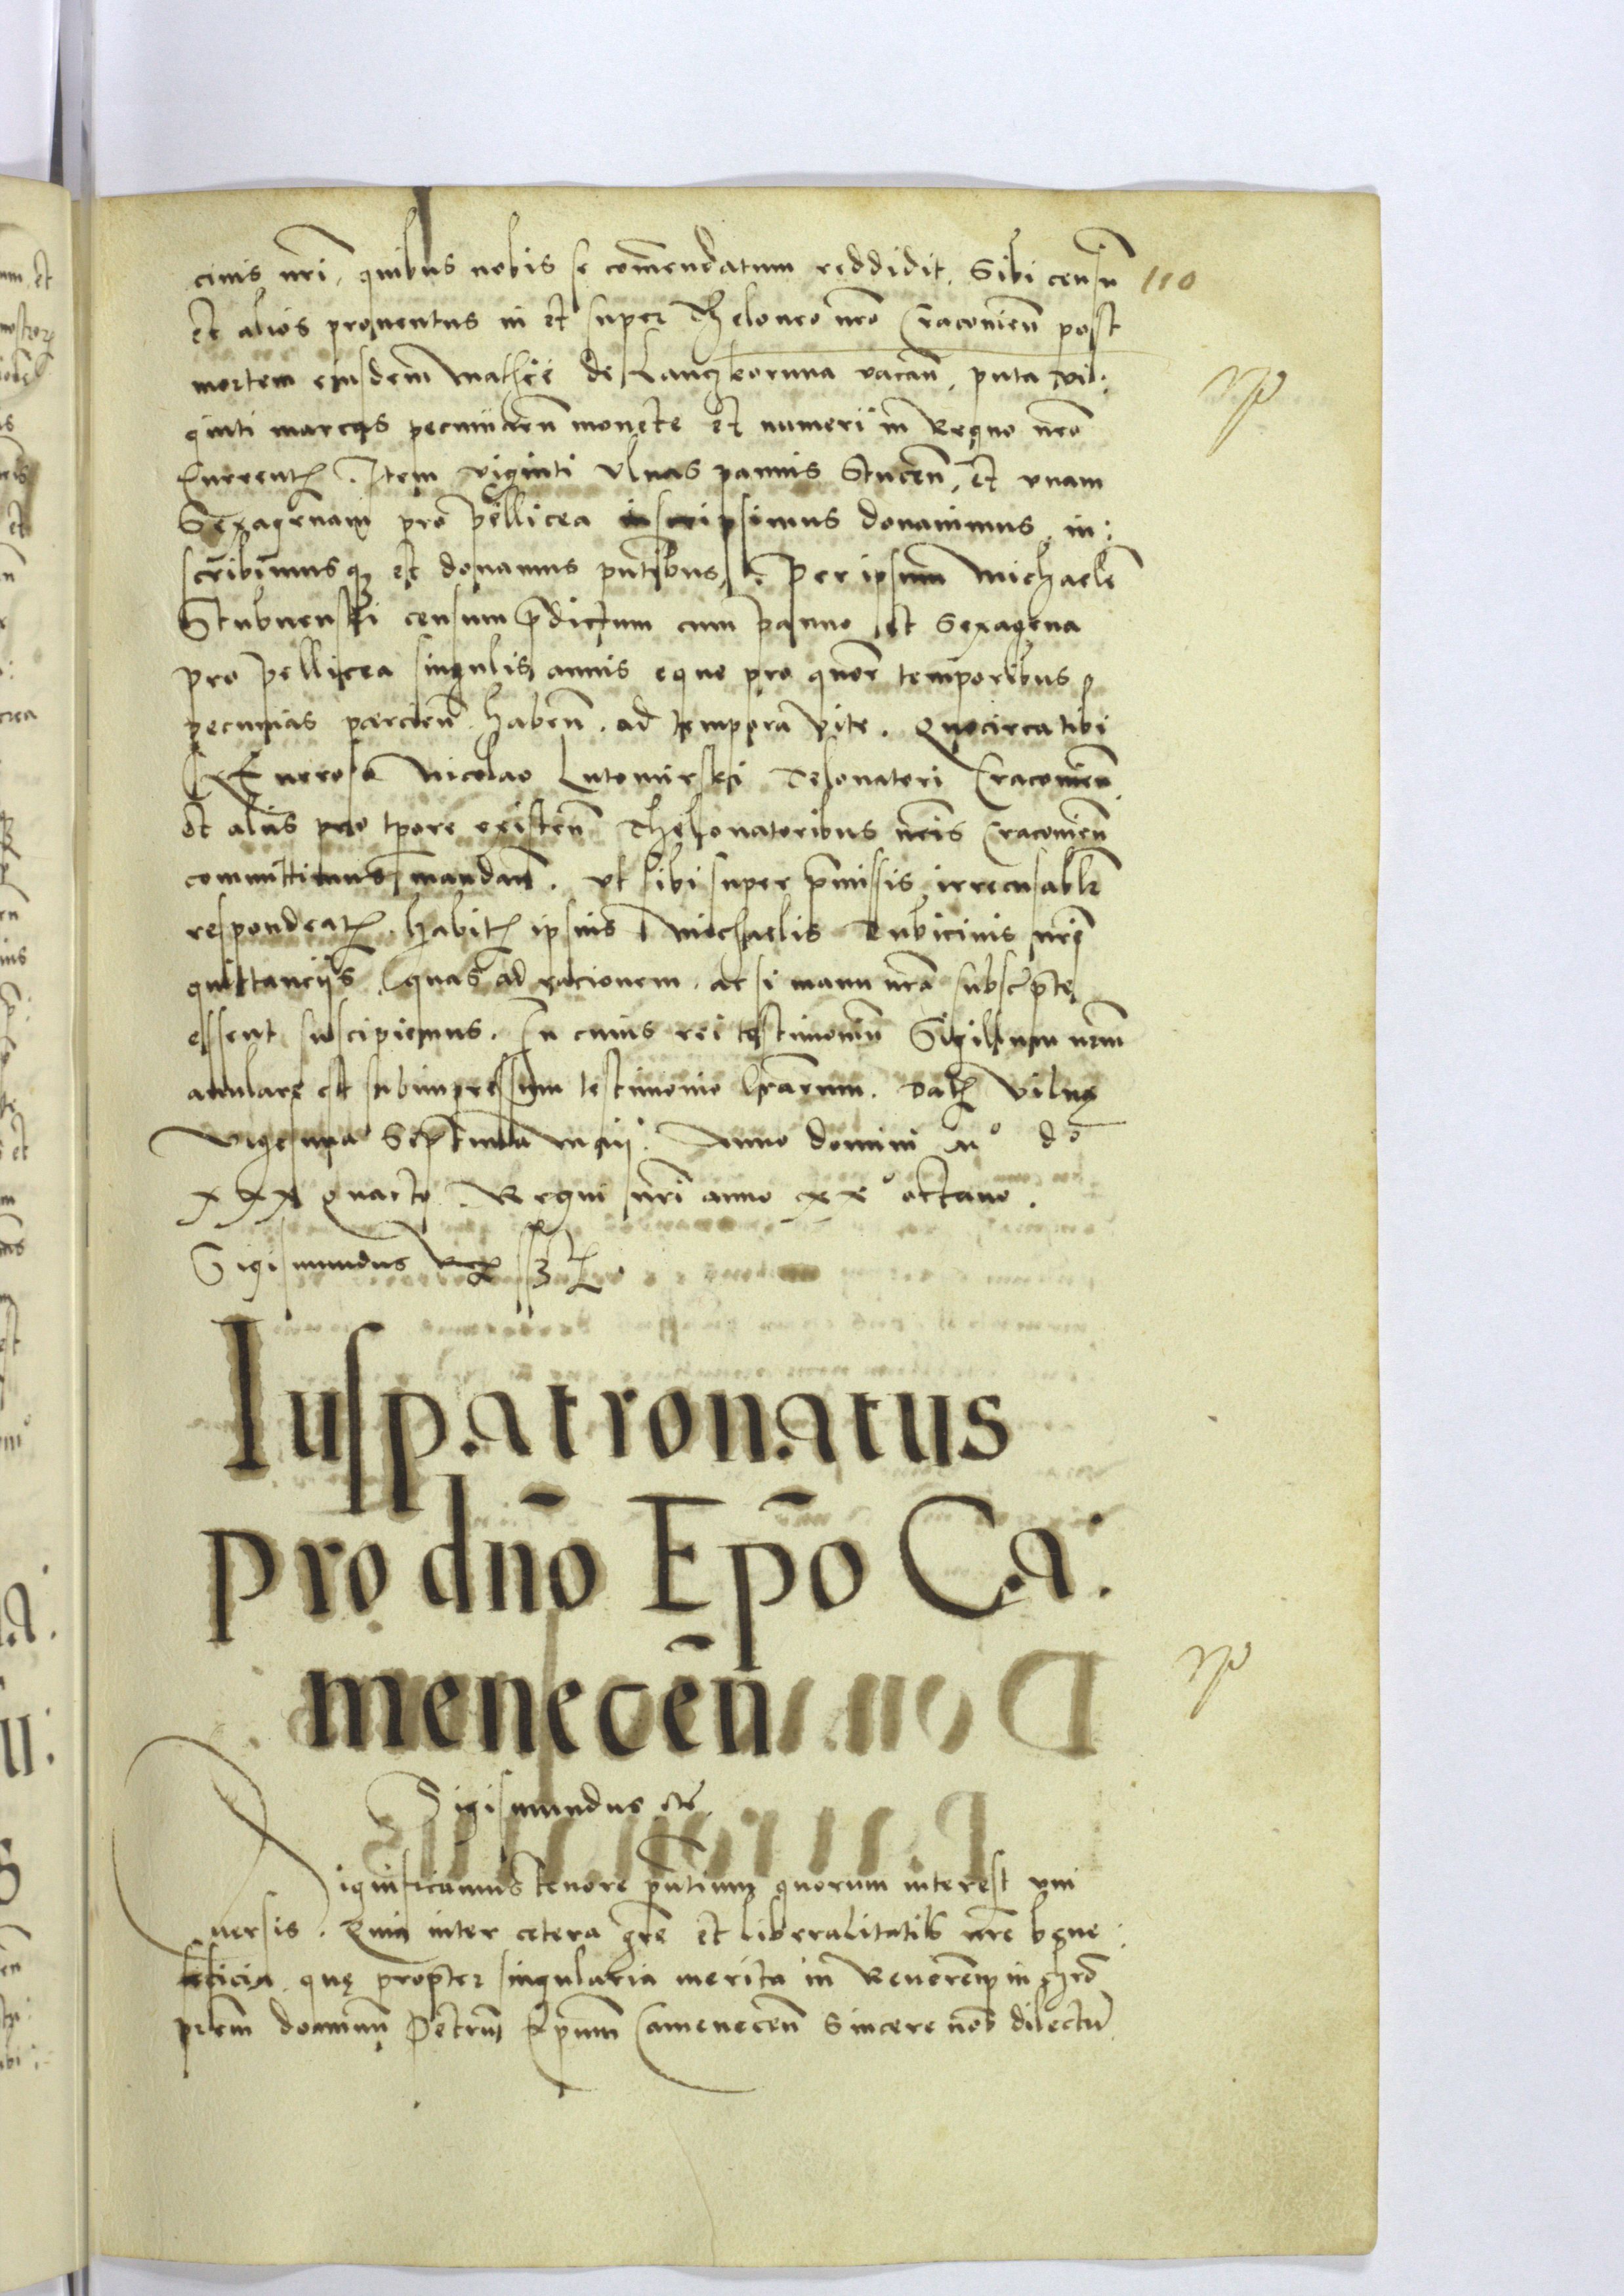 cinis nrī, quibus nobis se com̄endatum reddidit. Sibi censū 110
et alios prouentus in et super Theloneo nrō Cracouien̄ post
mortem eiusdem Mathie de Lanczkoruna vacan̄, puta vi:
ginti marcas pecuniarū monete et numeri in Regno nrō
Currentꝭ. Item viginti Vlnas pannis Stucen̄, et vnam
Sexagenam pro pellicea inscripsimus donauimus, in:
scribimusqꝫ et donamus pn̄tibus, Per ipsum Michaelē
Stubnenski censum p̄dictum cum panno et Sexagena
pro pellicea singulis annis eque pro quor̄ temporibus
pecunias parcien̄. haben̄. ad tempora vite. Quocirca tibi
GEneroso Nicolao Lutomirski Telonatori Cracouien̄
et aliis pro tp̄ore existen̄ Thelonatoribus nrīs Cracouien̄
committimus mandan̄. vt sibi super p̄missis irrecusabłr
respondeatꝭ. habitꝭ ipsius Michaelis Tubicinis nrī
quittanciis, quas ad racionem. ac si manu nrā subscr̄pte
essent suscipiemus. In cuius rei testimoniū Sigillum nrm̄
annulare est subimpressum testimonio lrārum. Datꝭ Vilnę
vigesima Septima Maij. Anno domini Mº dº
XXX quarto. Regni nrī anno xxº octauo.
Sigismundus Rex sszt.
Iuspatronatus
pro dnō Ep̄o Ca:
menecen̄
Sigismundus etc̄.
Significamus tenore pn̄tium quorum interest vni
uersis. Quia inter cetera grē et liberalitatis nrē bene:
ficia, quę propter singularia merita in Reueren̄ in chrō
prēm dominū Petrum Epūm Camenecen̄ Sincere nob̄ dilectū